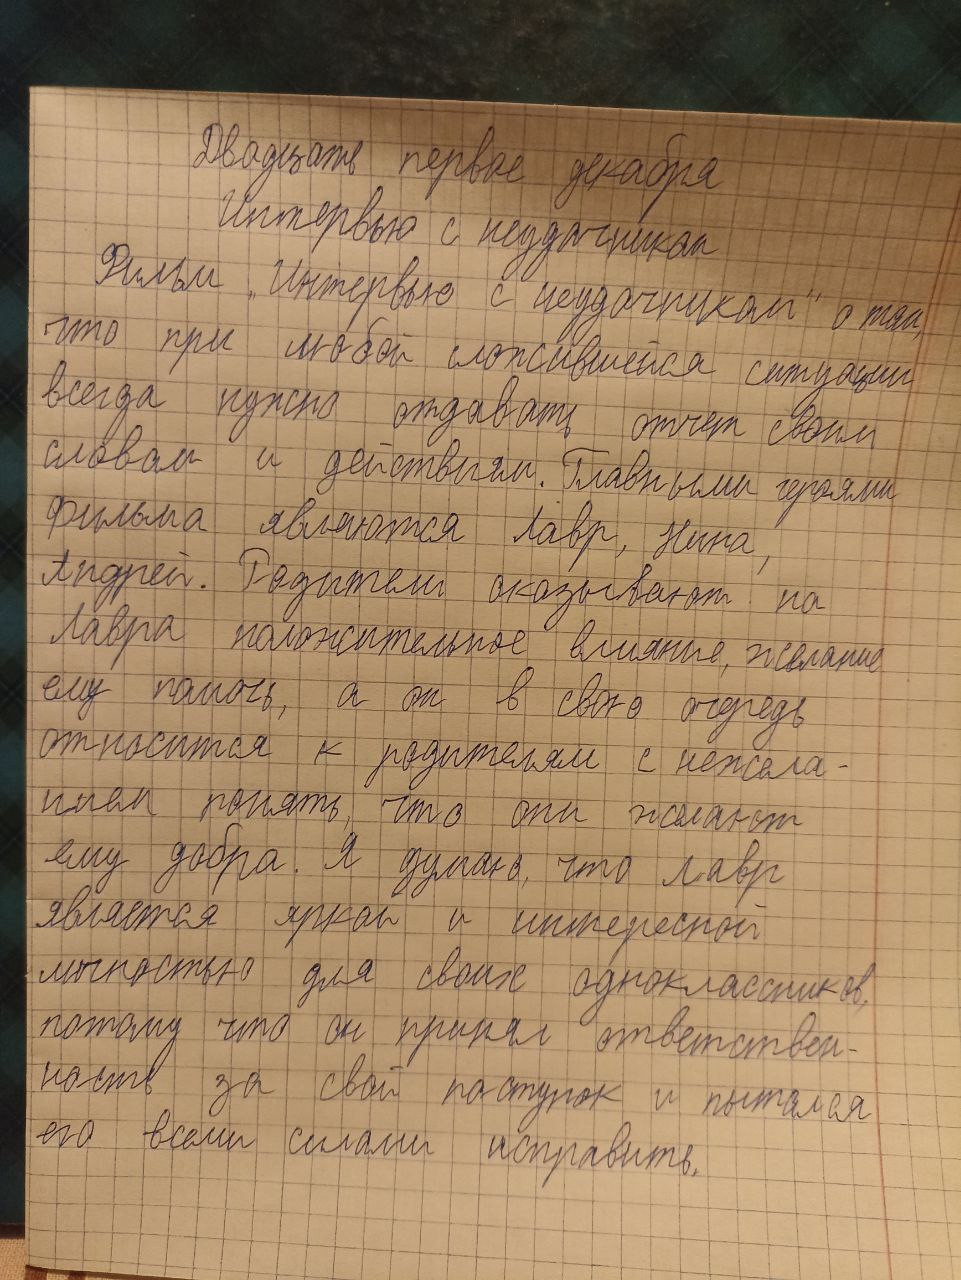 Двадцать первое декабря
Интервью с неудачником
Фильм „Интервью с неудачником" о том,
что при любой сложившейся ситуации
всегда нужно отдавать отчет своим
словам и действиям. Главными героями
фильма являются Лавр, Нина,
Андрей. Родители оказывают на
Лавра положительное влияние, желание
ему помочь, а он в свою очередь
относится к родителям с нежела-
нием понять, что они желают
ему добра. Я думаю, что Лавр
является яркой и интересной
личностью для своих одноклассников,
потому что он принял ответствен-
ность за свой поступок и пытался
его всеми силами исправить.